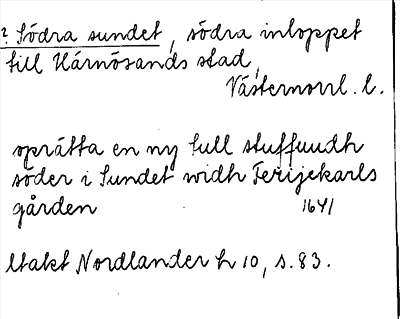 ? Södra sundet, södra inloppet
till Härnösands stad,
Västernorrl. l.
oprätta en ny tull stuffuudh
söder i Sundet widh Ferijekarls
gården 1641
Utakt Nordlander h 10, s. 83.